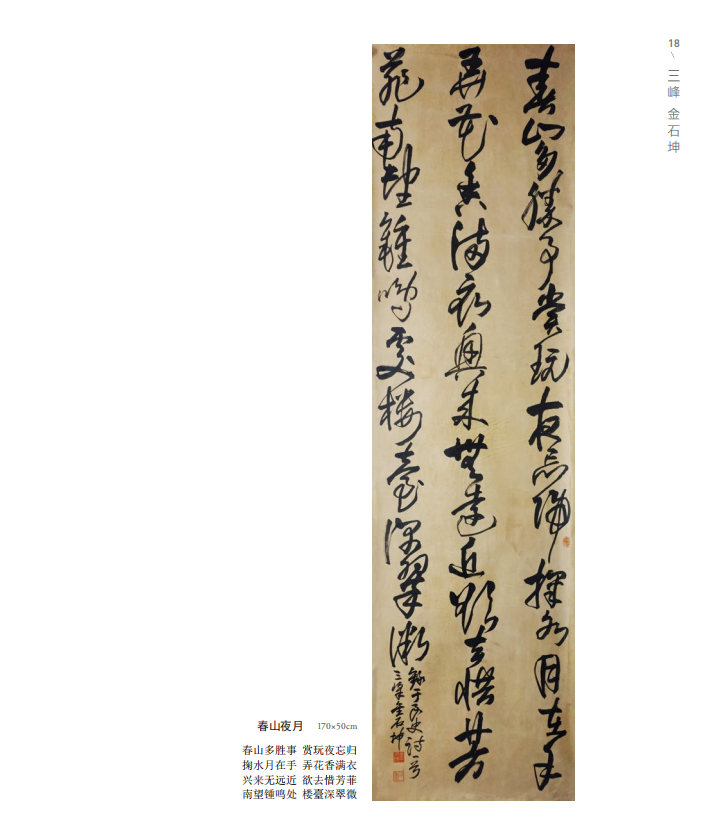 18
\
三峰 金石坤
春山多勝事賞玩夜忘歸掬水月在手
弄花香滿衣興來無遠近欲去惜芳
菲南望鐘鳴處樓臺深翠微
錄于良史詩一首
三峯金石坤
春山夜月 170×50cm
春山多胜事 赏玩夜忘归
掬水月在手 弄花香满衣
兴来无远近 欲去惜芳菲
南望锺鸣处 楼臺深翠微